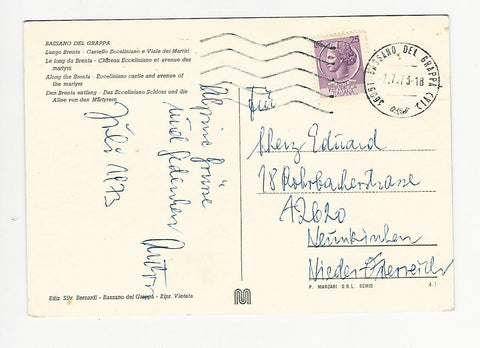 BASSANO DEL GRAPPA
Lungo Brenta - Castello Ecceliniano e Viale dei Martiri
Le long du Brenta - Château Ecceliniano et avenue des
martyrs
Along the Brenta - Ecceliniano castle and avenue of
the martyrs
Den Brenta entlang - Das Ecceliniano Schloss und die
Allee von den Märtyrern
Alpine Grüsse
und Gedenken
Juli 1973
Ediz. Silv. Bernardi - Bassano del Grappa - Ripr. Vietata
25
36061 BASSANO DEL GRAPPA (VI)
7.7.73-18
für
Eduard
18 Rohrbacherstrasse
A2620
Neunkirchen
Niederösterreich
P. MARZARI S.R.L. SCHIO
4-1